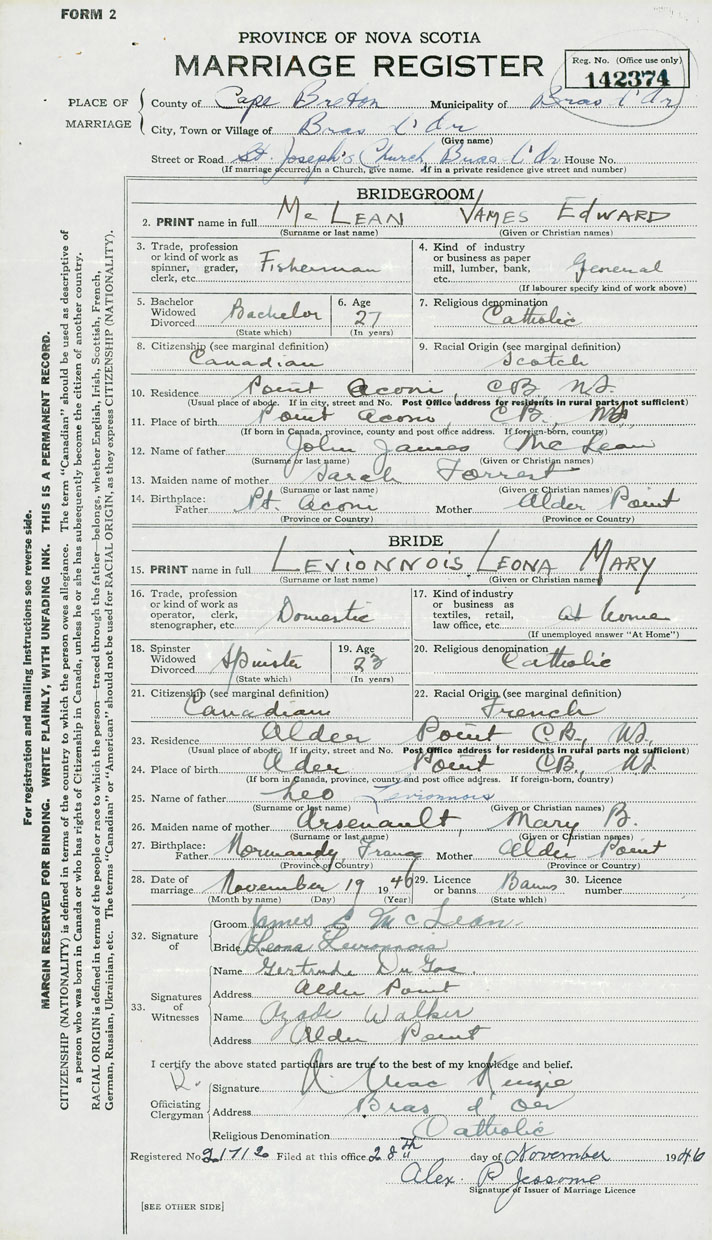 FORM 2
PROVINCE OF NOVA SCOTIA
MARRIAGE REGISTER
Reg. No. (Office use only)
142374
PLACE OF MARRIAGE
County of Cape Breton Municipality of Bras d'Or
City, Town or Village of Bras d'Or
(Give name)
Street or Road St. Joseph's Church, Bras d'Or House No.
(If marriage occurred in a Church, give name. If in a private residence give street and number)
BRIDEGROOM
2. PRINT name in full McLEAN JAMES EDWARD
(Surname or last name) (Given or Christian names)
3. Trade, profession or kind of work as spinner, grader, clerk, etc. Fisherman
4. Kind of industry or business as paper mill, lumber, bank, etc. General
(If labourer specify kind of work above)
5. Bachelor Widowed Divorced Bachelor (State which)
6. Age 27 (In years)
7. Religious denomination Catholic
8. Citizenship (see marginal definition) Canadian
9. Racial Origin (see marginal definition) Scotch
10. Residence Point Aconi, C.B., N.S.
(Usual place of abode. If in city, street and No. Post Office address for residents in rural parts not sufficient)
11. Place of birth Point Aconi, C.B., N.S.
(If born in Canada, province, county and post office address. If foreign-born, country)
12. Name of father John James McLean
(Surname or last name) (Given or Christian names)
13. Maiden name of mother Sarah Forrest
(Surname or last name) (Given or Christian names)
14. Birthplace: Father Pt. Aconi Mother Alder Point
(Province or Country) (Province or Country)
BRIDE
15. PRINT name in full LEVIONNOIS, LEONA MARY
(Surname or last name) (Given or Christian names)
16. Trade, profession or kind of work as operator, clerk, stenographer, etc. Domestic
17. Kind of industry or business as textiles, retail, law office, etc. at home
(If unemployed answer "At Home")
18. Spinster Widowed Divorced Spinster (State which)
19. Age 23 (In years)
20. Religious denomination Catholic
21. Citizenship (see marginal definition) Canadian
22. Racial Origin (see marginal definition) French
23. Residence Alder Point C.B., N.S.
(Usual place of abode. If in city, street and No. Post Office address for residents in rural parts not sufficient)
24. Place of birth Alder Point C.B., N.S.
(If born in Canada, province, county and post office address. If foreign-born, country)
25. Name of father Leo Levionnois
(Surname or last name) (Given or Christian names)
26. Maiden name of mother Arsenault, Mary B.
(Surname or last name) (Given or Christian names)
27. Birthplace: Father Normandy, France Mother Alder Point
(Province or Country) (Province or Country)
28. Date of marriage November 19 1946
(Month by name) (Day) (Year)
29. Licence or banns Banns (State which)
30. Licence number
32. Signature of
Groom James E McLean
Bride Leona Levionnois
33. Signatures of Witnesses
Name Gertrude DuGas.
Address Alder Point
Name Walker
Address Alder Point
I certify the above stated particulars are true to the best of my knowledge and belief.
Officiating Clergyman
Signature MacKenzie
Address Bras d'Or
Religious Denomination Catholic
Registered No. 21712 Filed at this office 28th day of November 1946
Alex. P. Jessome
Signature of Issuer of Marriage Licence
[SEE OTHER SIDE]
For registration and mailing instructions see reverse side.
MARGIN RESERVED FOR BINDING. WRITE PLAINLY, WITH UNFADING INK. THIS IS A PERMANENT RECORD.
CITIZENSHIP (NATIONALITY) is defined in terms of the country to which the person owes allegiance. The term "Canadian" should be used as descriptive of
a person who was born in Canada or who has rights of Citizenship in Canada, unless he or she has subsequently become the citizen of another country.
RACIAL ORIGIN is defined in terms of the people or race to which the person—traced through the father—belongs, whether English, Irish, Scottish, French,
German, Russian, Ukrainian, etc. The terms "Canadian" or "American" should not be used for RACIAL ORIGIN, as they express CITIZENSHIP (NATIONALITY).